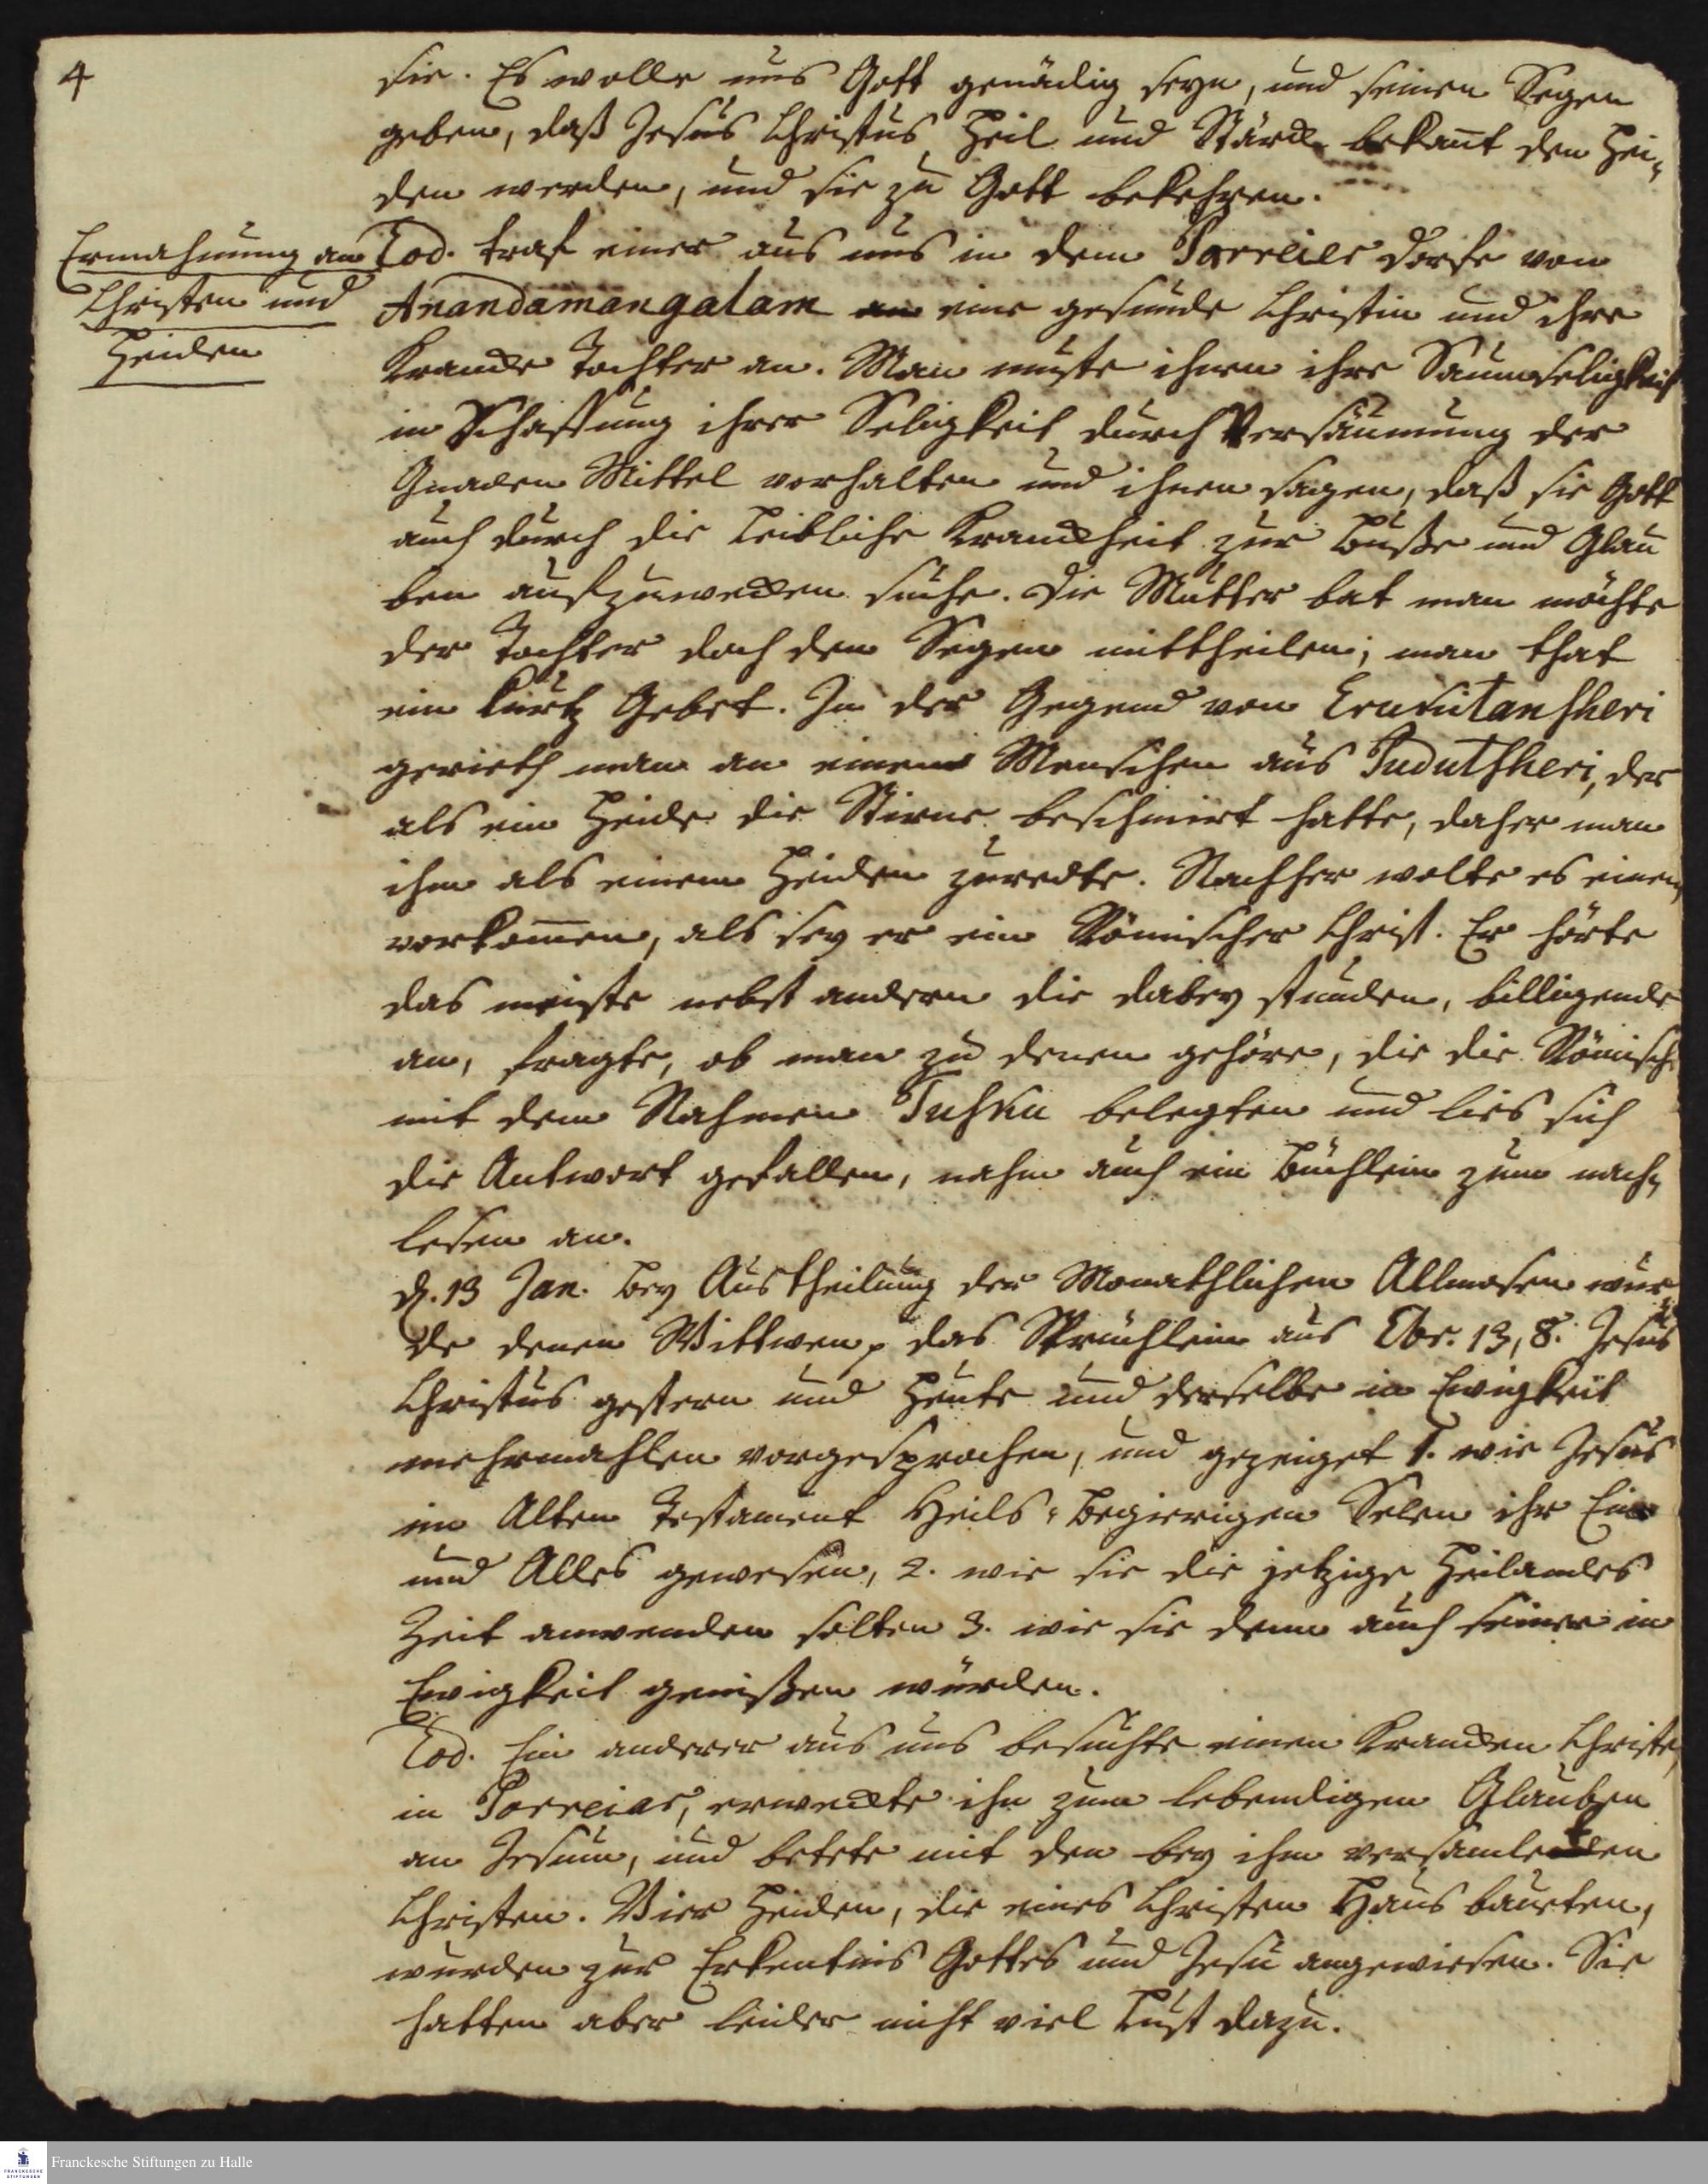 4
sie. Es wolle uns Gott genädig seyn, und seinen Segen
geben, daß Jesus Christus Heil und Stärcke bekañt den Hei-
den werden, und sie zu Gott bekehren.
Ermahnung an
Christen und
Heiden
Eod. traf einer aus uns in dem Porreier Dorfe von
Anandamangalam eine gesunde Christin und ihre
Krancke Tochter an. Man muste ihnen ihre Saumseligkeit
in Schaffung ihrer Seligkeit durch Versäumung der
Gnaden Mittel vorhalten und ihnen sagen, daß sie Gott
auch durch die Leibliche Kranckheit zur Buße und Glau
ben aufzuwecken suche. Die Mutter bat man möchte
der Tochter doch den Segen mittheilen; man that
ein kurtz Gebet. In der Gegend von Erukutansheri
gerieth man an einen Menschen aus Pudutsheri, der
als ein Heide die Stirne beschmiert hatte, daher man
ihm als einem Heiden zuredte. Nachher wolte es einem
vorkom̃en, als sey er ein Römischer Christ. Er hörte
das meiste nebst andern die dabey stunden, billigende
an, fragte, ob man zu denen gehöre, die die Römisch
mit dem Nahmen belegten und lies sich
die Antwort gefallen, nahm auch ein Büchlein zum nach-
lesen an.
d. 13 Jan. Bey Austheilung der Monathlichen Allmosen wur-
de denen Wittwen das Sprüchlein aus Ebr. 13, 8. Jesus
Christus gestern und heute und derselbe in Ewigkeit
mehrmahlen vorgesprochen, und gezeiget 1. wie Jesus
im Alten Testament Heils-begierigen Selen ihr Ein
und Alles gewesen, 2. wie sie die jetzige Heilandes
Zeit anwenden solten 3. wie sie denn auch seiner in
Ewigkeit genießen würden.
Eod. Ein anderer aus uns besuchte einen Krancken Christe
in Porreiar, erweckte ihn zum lebendigen Glauben
an Jesum, und betete mit den bey ihm versamleten
Christen. Vier Heiden, die eines Christen Haus baueten,
wurden zur Erkentnis Gottes und Jesu angewiesen. Sie
hatten aber leider nicht viel Lust dazu.
FRANCKESCHE STIFTUNGEN
Franckesche Stiftungen zu Halle